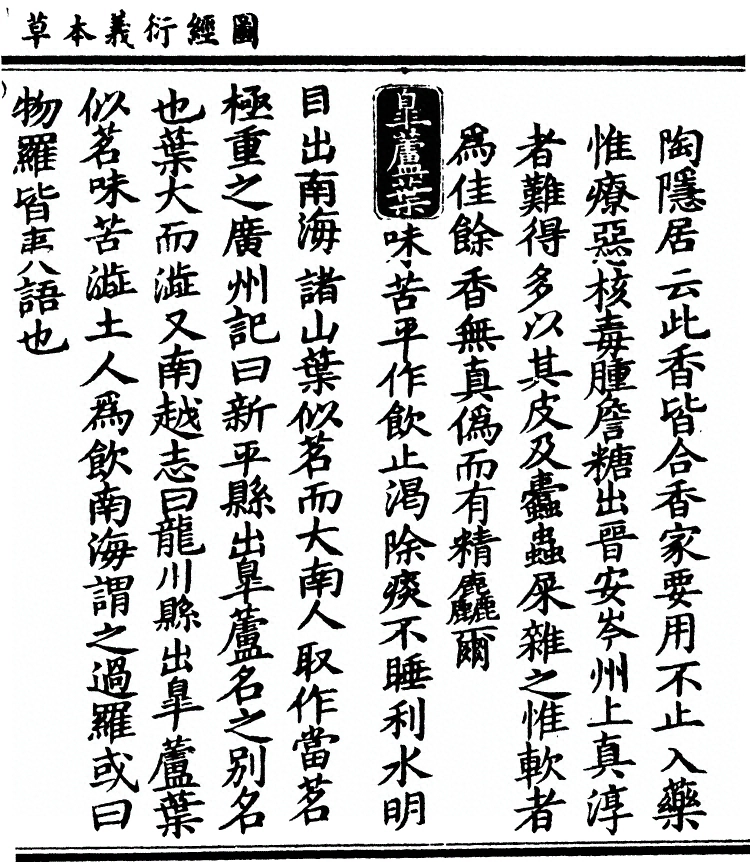 圖經衍義本草
陶隱居云此香皆合香家要用不止入藥
惟療惡核毒腫詹糖出晉安岑州上真淳
者難得多以其皮及蠹蟲屎雜之惟軟者
為佳餘香無真偽而有精麤爾
皐蘆葉味苦平作飲止渴除痰不睡利水明
目出南海諸山葉似茗而大南人取作當茗
極重之廣州記曰新平縣出皐蘆名之别名
也葉大而澁又南越志曰龍川縣出皐蘆葉
似茗味苦澁土人為飲南海謂之過羅或曰
物羅皆夷語也